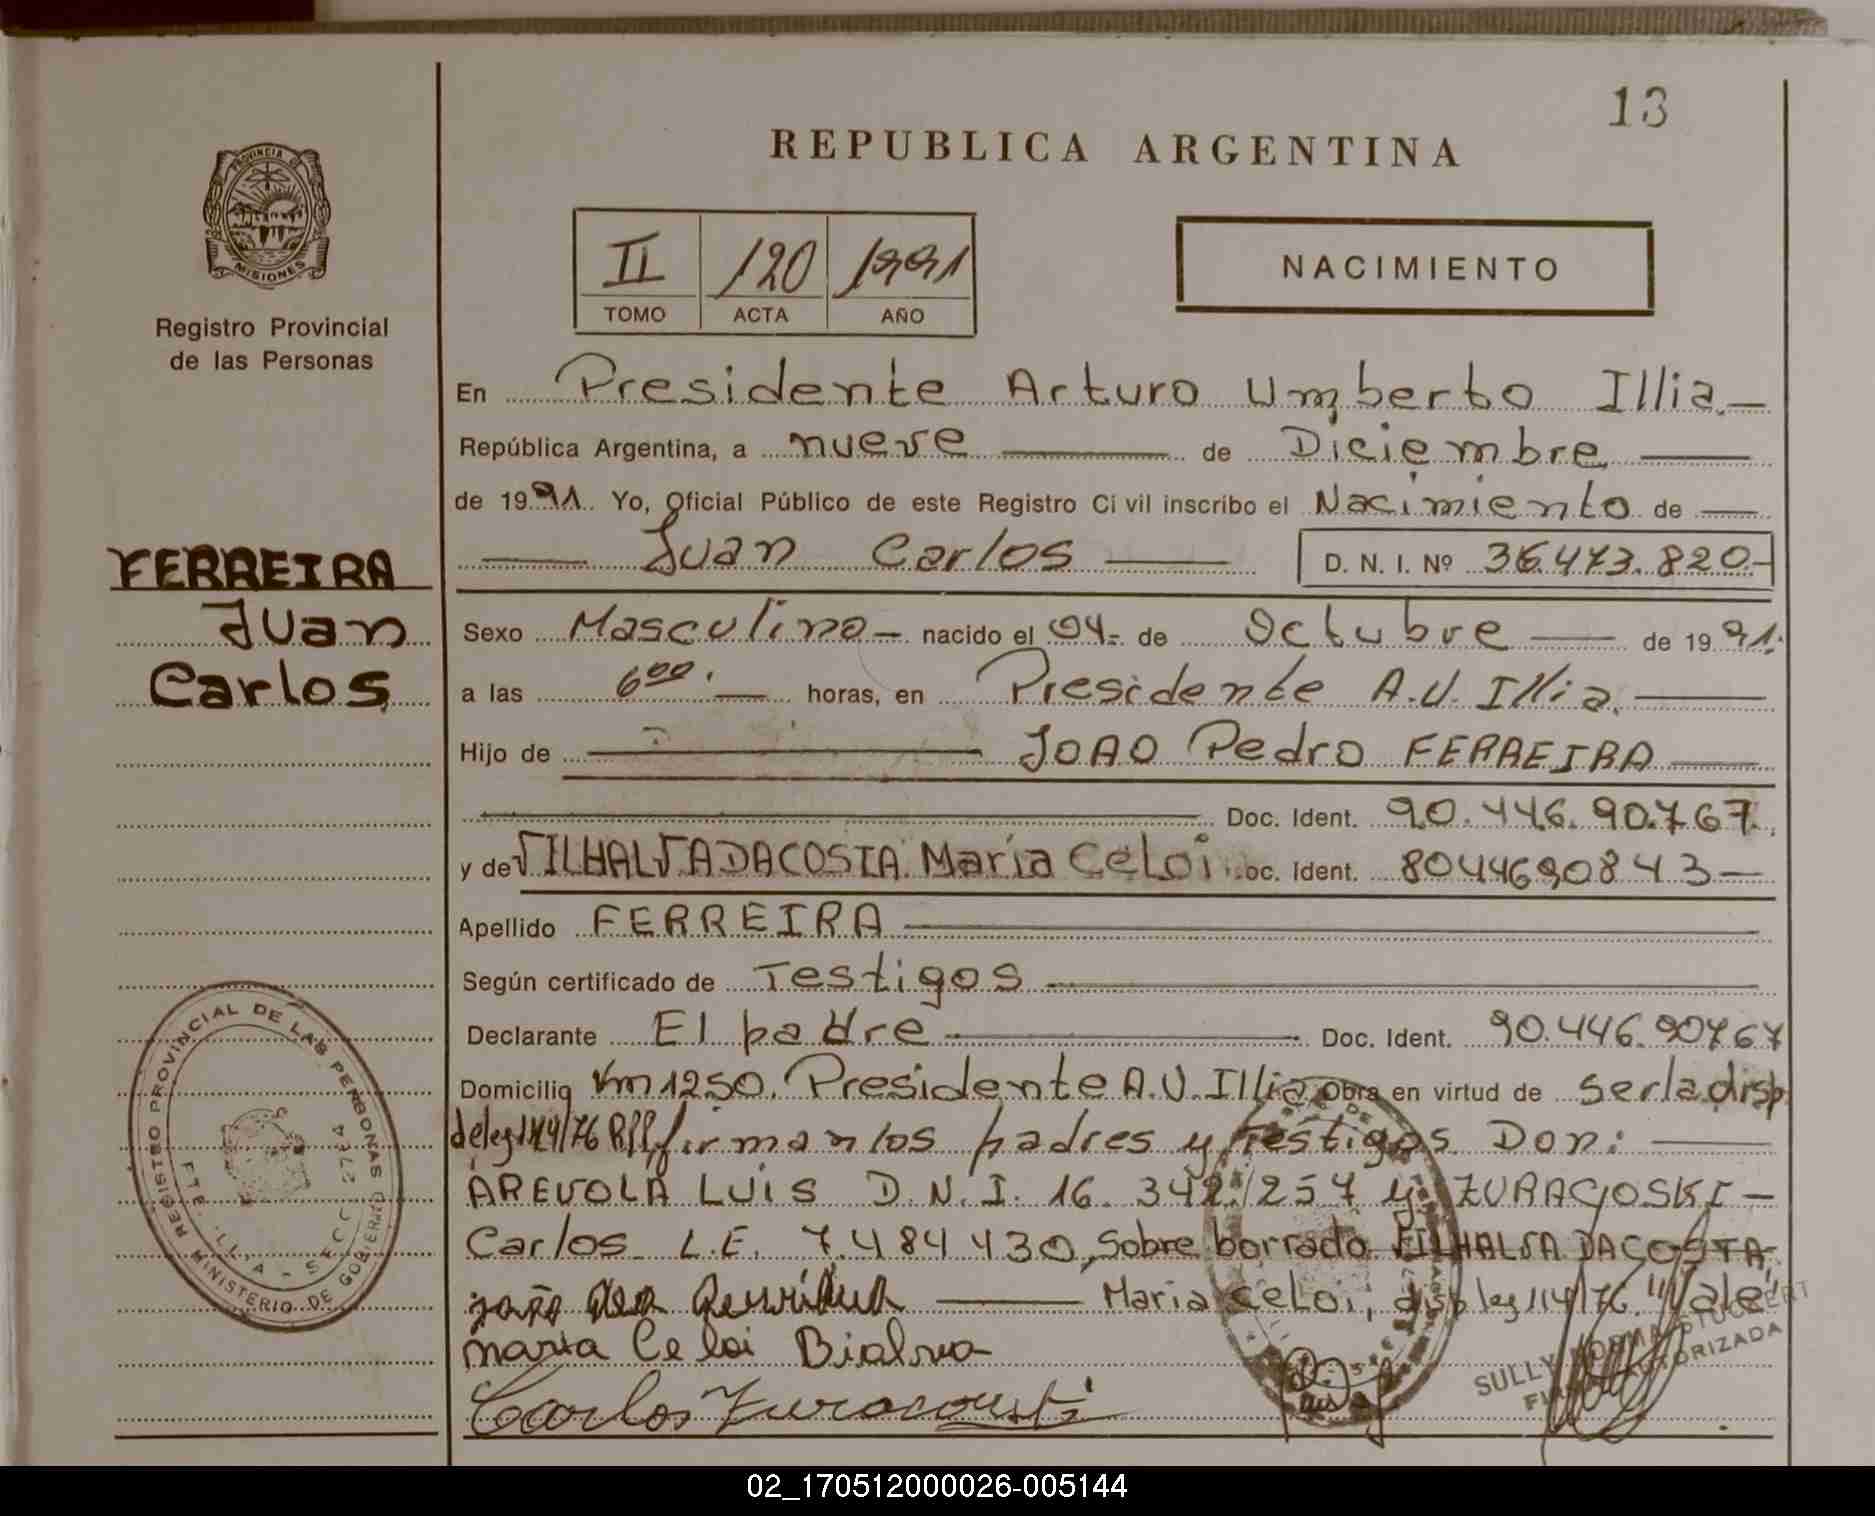 13
REPUBLICA ARGENTINA
PROVINCIA DE
MISIONES
Registro Provincial
de las Personas
II 120 1991
TOMO ACTA AÑO
NACIMIENTO
En Presidente Arturo Umberto Illia.—
República Argentina, a nueve — de Diciembre —
de 1991. Yo, Oficial Público de este Registro Civil inscribo el Nacimiento de —
— Juan Carlos — D. N. I. Nº 36.473.820-
FERREIRA
Juan
Carlos
Sexo Masculino — nacido el 04- de Octubre — de 1991.
a las 6 00 . — horas, en Presidente A.U. Illia. —
Hijo de — JOAO Pedro FERREIRA —
— Doc. Ident. 90.446.90.767.
y de VILHALVA DACOSTA Maria Celoi oc. Ident. 8044690843—
Apellido FERREIRA —
Según certificado de Testigos —
Declarante El padre — Doc. Ident. 90.446.90767
Domicilio Km 1250. Presidente A.U. Illia Obra en virtud de ser la disp
deleg 114/76 R.P.P. firman los padres y Testigos Don: —
AREVOLA LUIS D.N.I. 16.342.257 y ZURACOSKI —
Carlos L.E. 7.484430, Sobre borrado VILHALVA DACOSTA
— Maria Celoi, disp leg 114/76. "Vale"
maria Celoi
Carlos
REGISTRO PROVINCIAL DE LAS PERSONAS
MINISTERIO DE GOBIERNO
SULLY NORMA STUCKERT
FIRMA AUTORIZADA
02_170512000026-005144